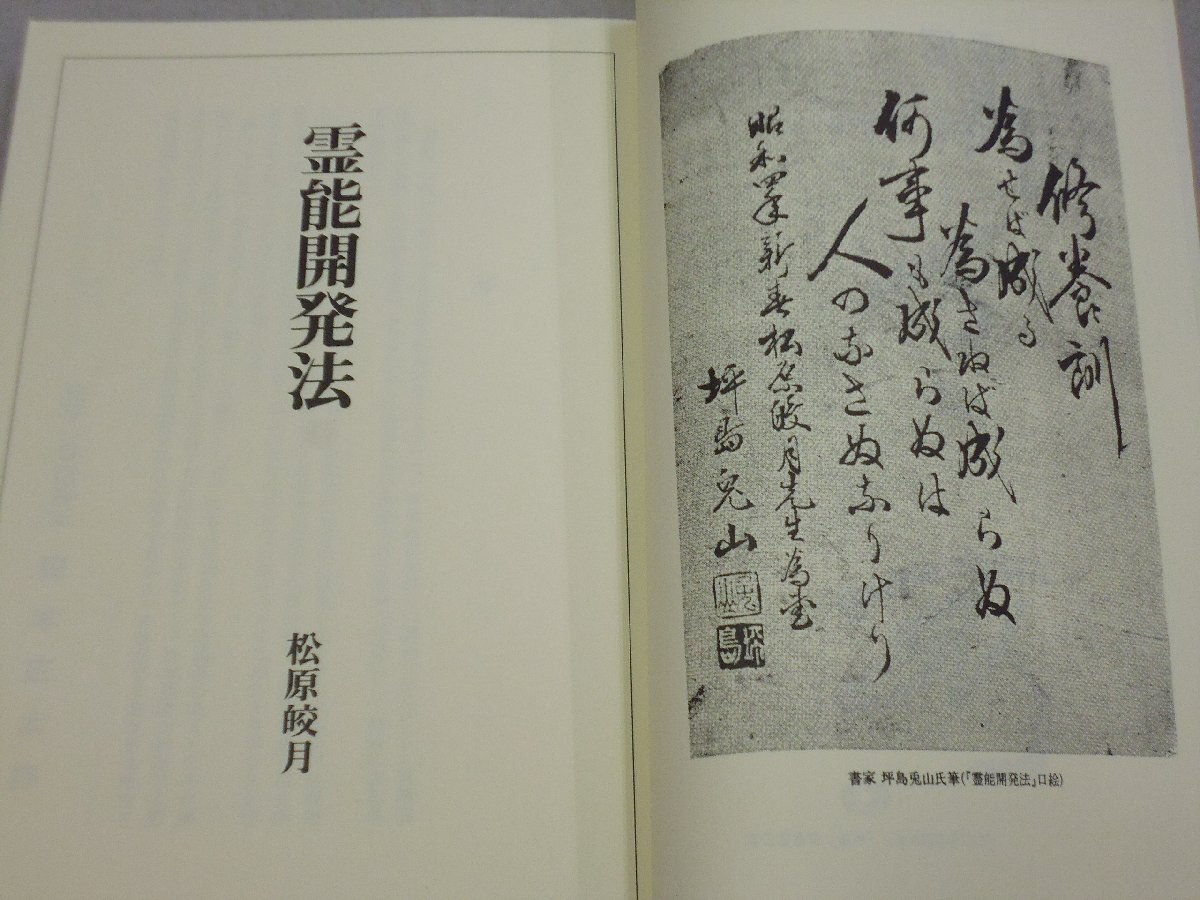 修養訓
為せば成る
為さねば成らぬ
何事も成らぬは
人のなさぬなりけり
昭和四年新春松原皎月先生為
坪島兎山
坪島
書家 坪島兎山氏筆(『靈能開発法』口絵)
霊能開発法
松原皎月